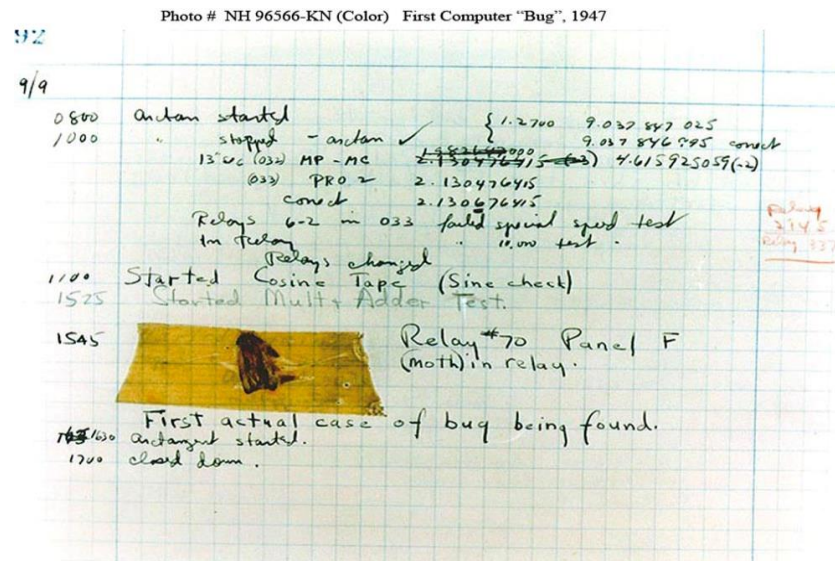 Photo # NH 96566-KN (Color) First Computer “Bug”, 1947
92
9/9
0800 Antan started
1000 " stopped - antan ✓ { 1.2700 9.037 847 025
9.037 846 995 conect
13"uc (032) MP - MC 2.130476415 (-3) 4.615925059(-2)
(033) PRO 2 2.130476415
conect 2.130676415
Relays 6-2 in 033 failed special speed test
In Relay " 10.000 test .
Relays changed
1100 Started Cosine Tape (Sine check)
1525 Started Mult + Adder Test.
1545 Relay #70 Panel F
(moth) in relay.
First actual case of bug being found.
1630 antangent started.
1700 closed down.
Relay
2145
Relay 337